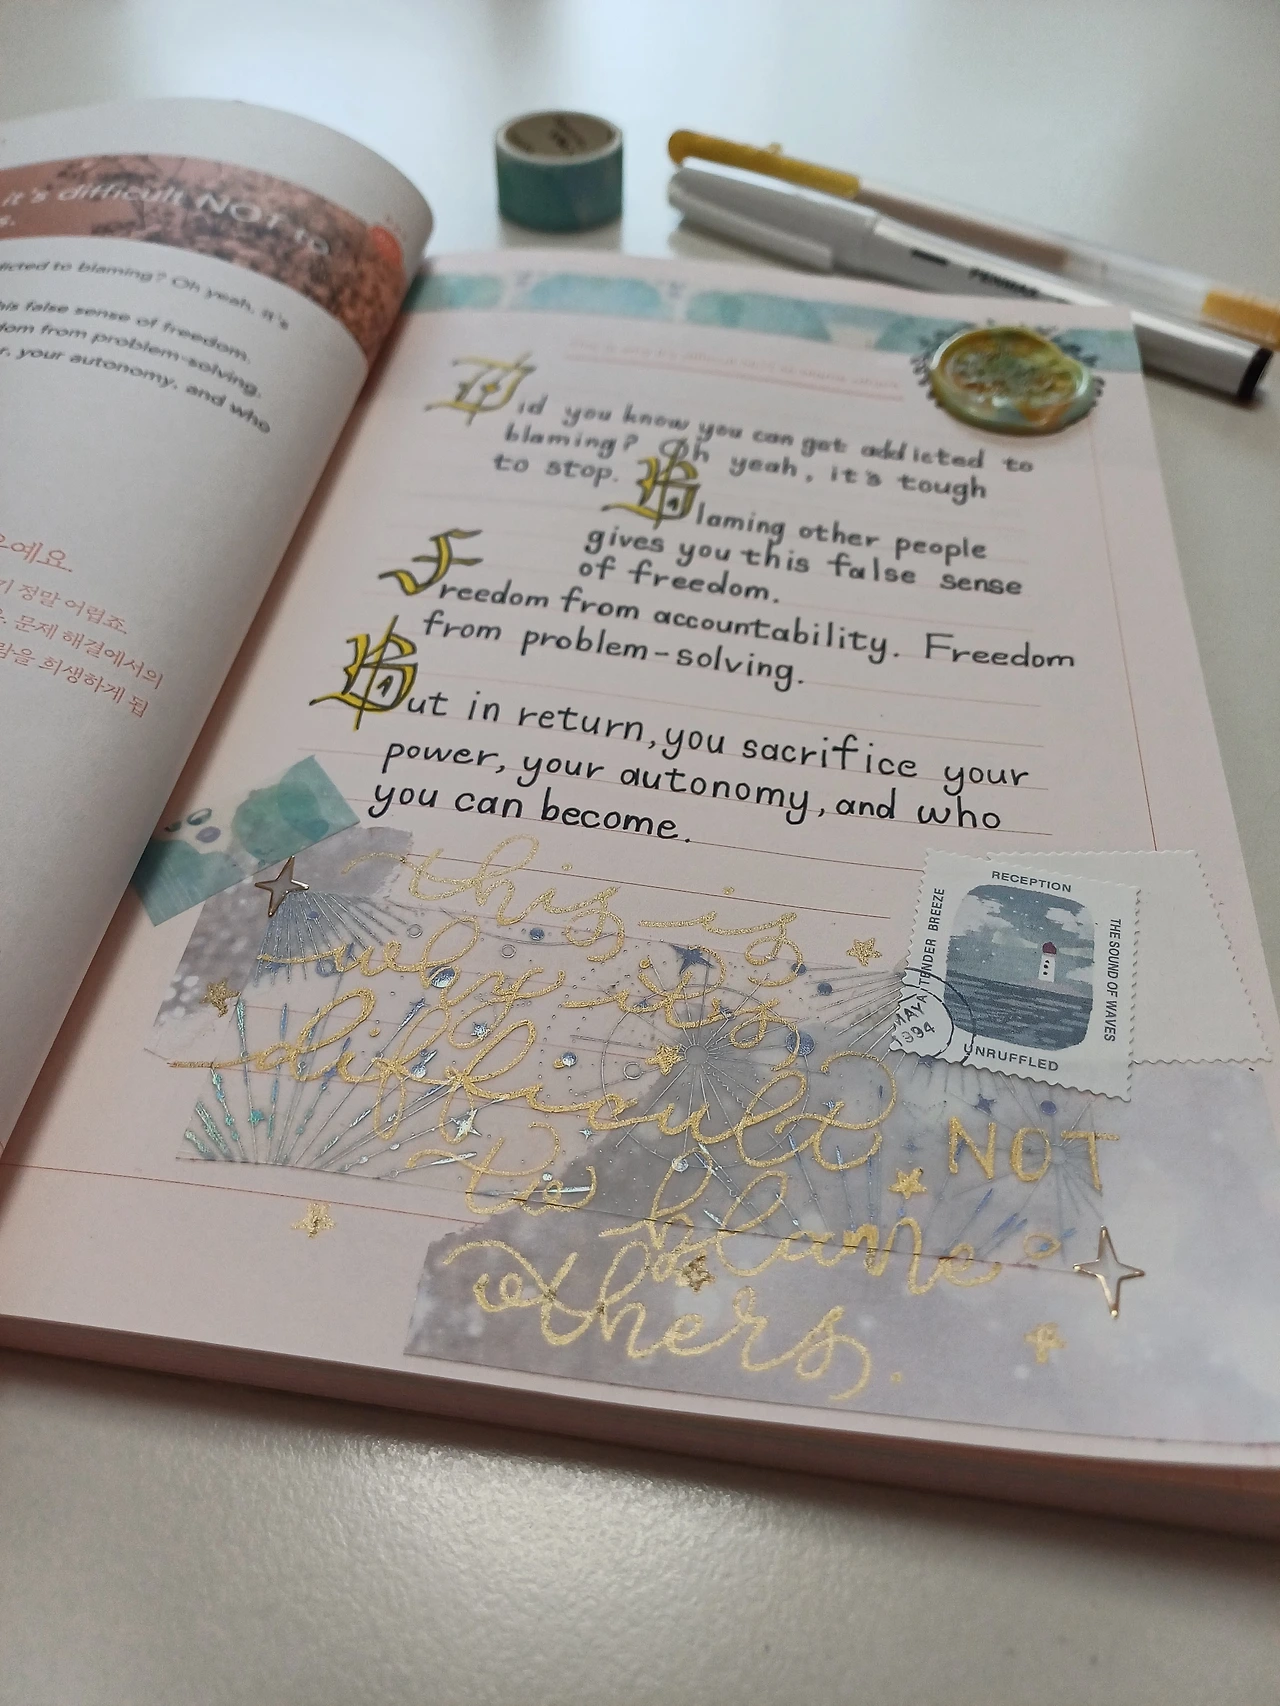 it's difficult NOT to
s.
licted to blaming? Oh yeah, it's
his false sense of freedom.
dom from problem-solving.
r, your autonomy, and who
예요.
기 정말 어렵죠.
문제 해결에서의
람을 희생하게 됩
Did you know you can get addicted to
blaming? Oh yeah, it's tough
to stop. Blaming other people
gives you this false sense
of freedom.
Freedom from accountability. Freedom
from problem-solving.
But in return, you sacrifice your
power, your autonomy, and who
you can become.
this is
why it's
difficult NOT
to blame
others.
RECEPTION
TENDER BREEZE
THE SOUND OF WAVES
UNRUFFLED
1994